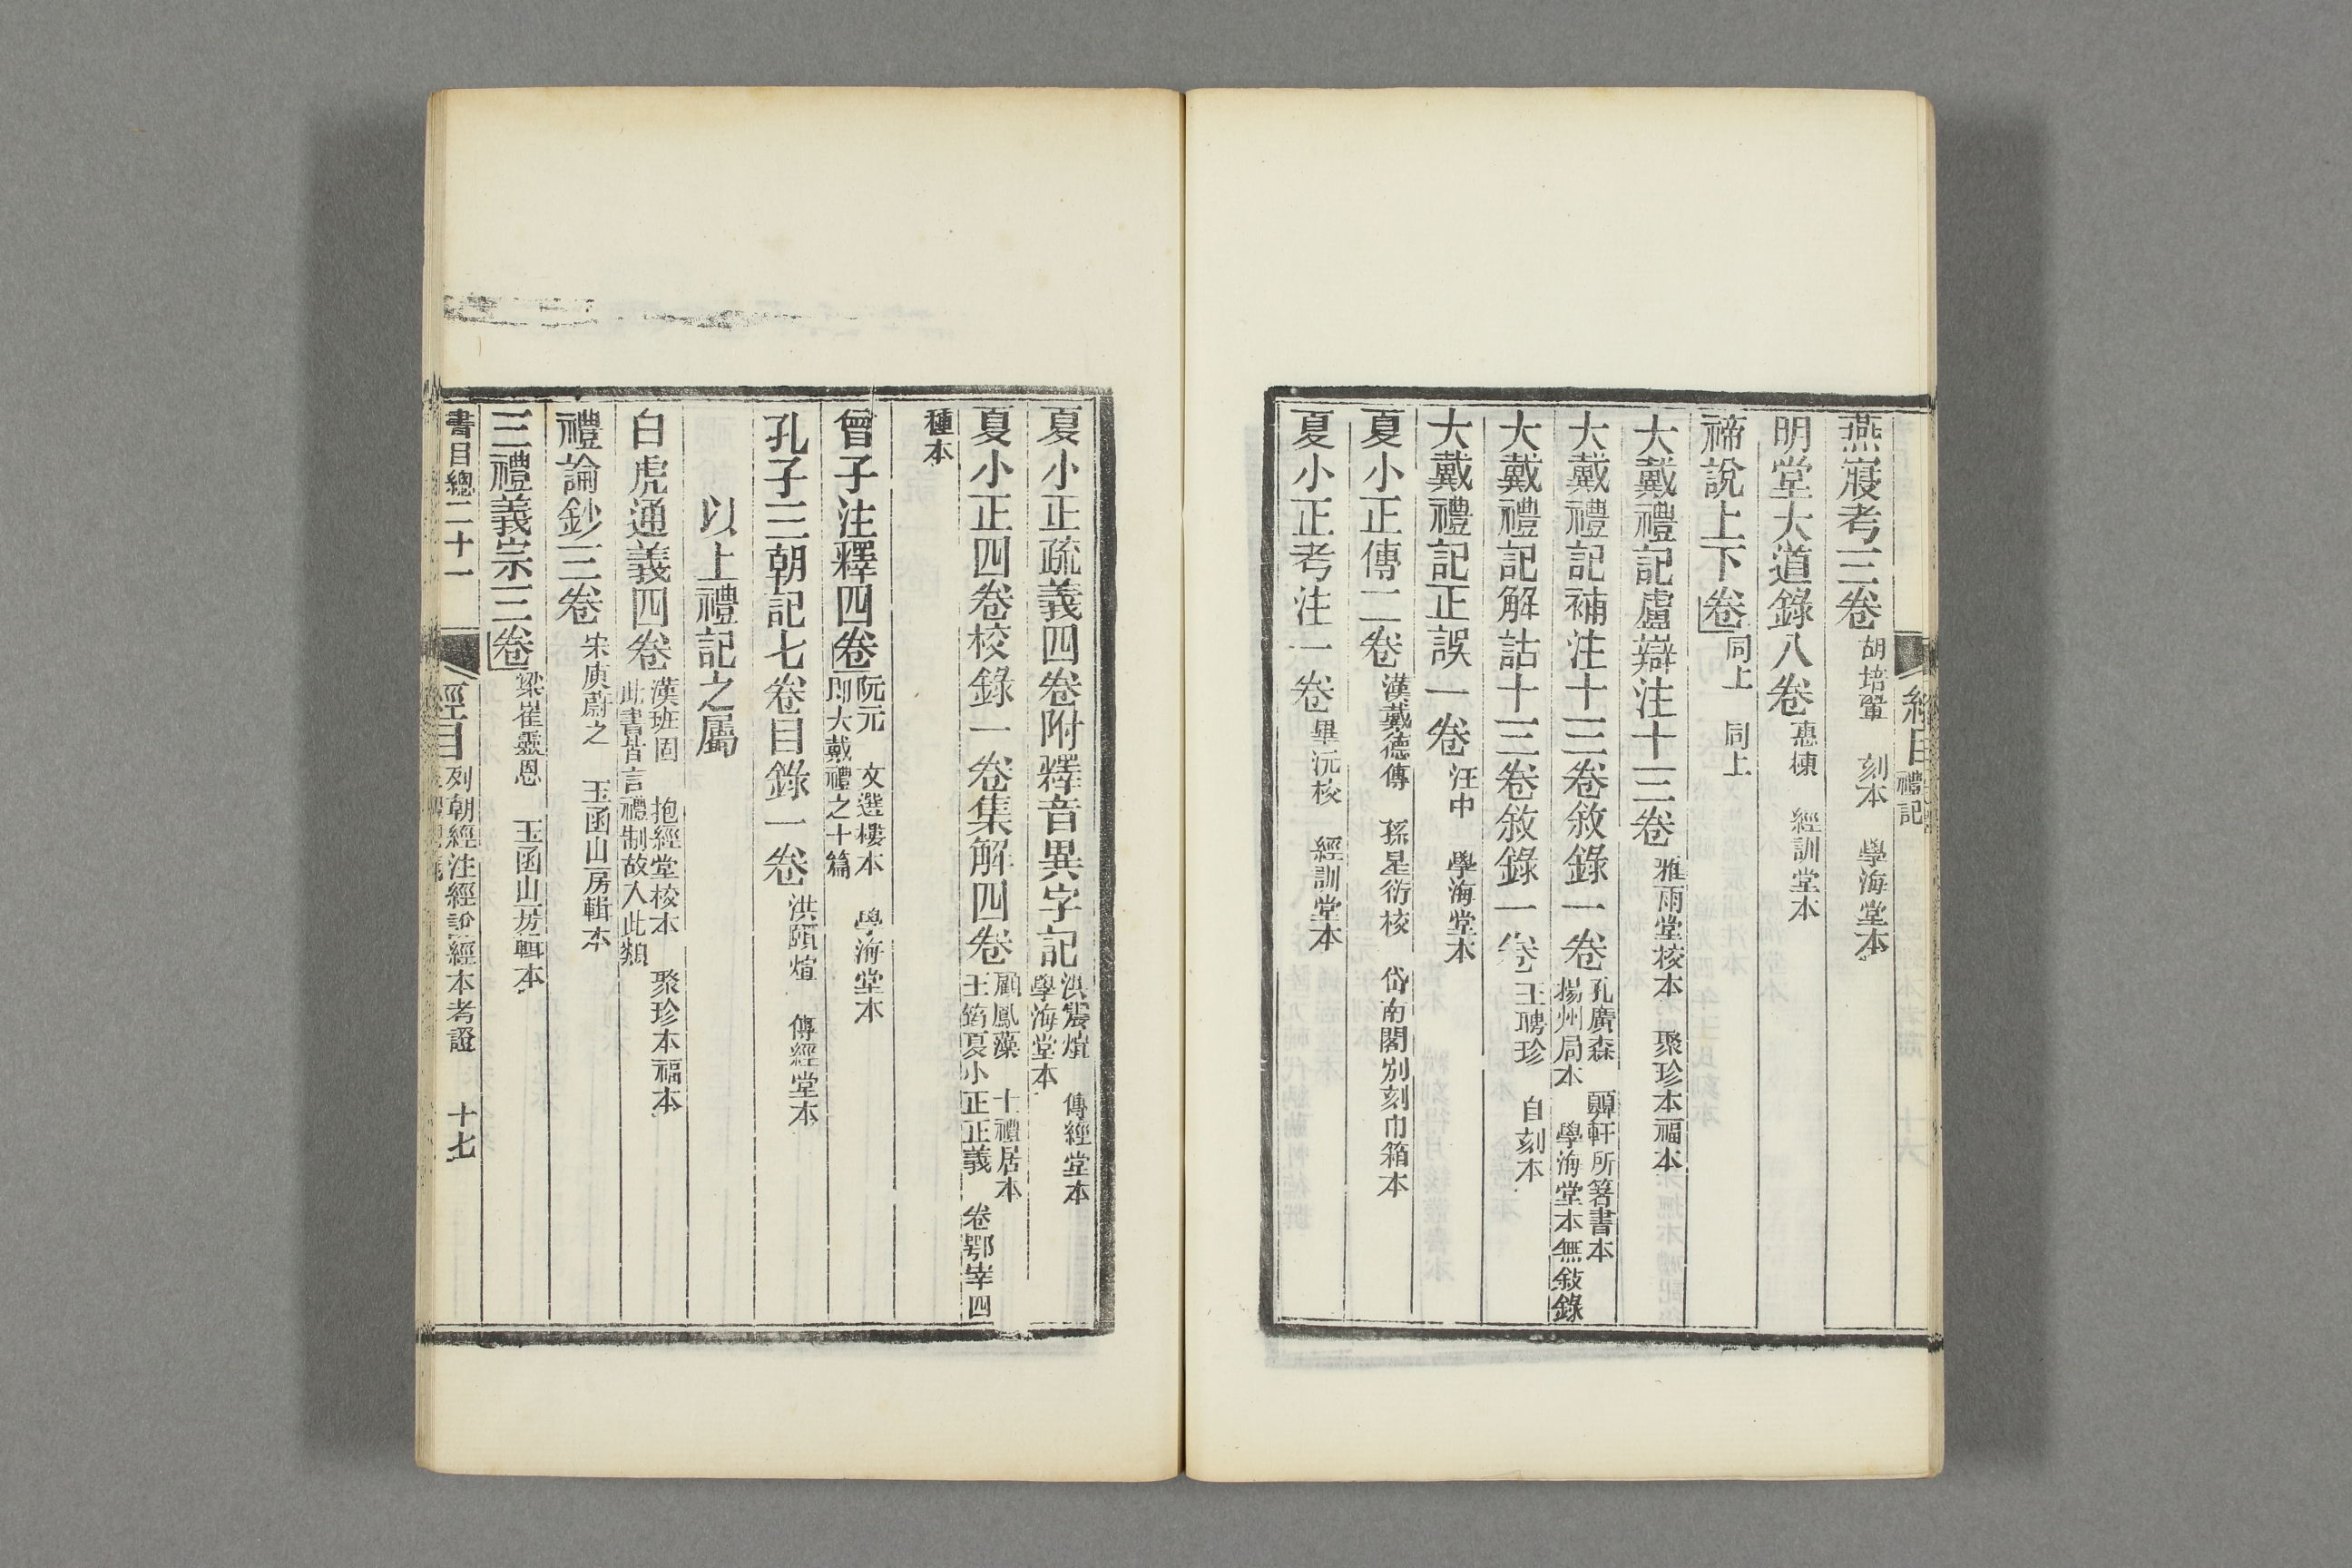 經目禮記
燕寢考三卷 胡培翬 刻本 學海堂本
明堂大道錄八卷 惠棟 經訓堂本
禘說上下卷 同上 同上
大戴禮記盧辯注十三卷 雅雨堂校本 聚珍本福本
大戴禮記補注十三卷敘錄一卷 孔廣森 顨軒所箸書本
揚州局本 學海堂本無敍錄
大戴禮記解詁十三卷敘錄一卷 王聘珍 自刻本
大戴禮記正誤一卷 汪中 學海堂本
夏小正傳二卷 漢戴德傳 孫星衍校 岱南閣別刻巾箱本
夏小正考注一卷 畢沅校 經訓堂本
夏小正疏義四卷附釋音異字記 洪震煊 傳經堂本
學海堂本
夏小正四卷校錄一卷集解四卷 顧鳳藻 士禮居本
王筠夏小正正義 卷鄂宰四
種本
曾子注釋四卷 阮元 文選樓本 學海堂本
即大戴禮之十篇
孔子三朝記七卷目錄一卷 洪頤煊 傳經堂本
以上禮記之屬
白虎通義四卷 漢班固 抱經堂校本 聚珍本福本
此書皆言禮制故入此類
禮論鈔三卷 宋庾蔚之 玉函山房輯本
三禮義宗三卷 梁崔靈恩 玉函山房輯本
書目總二十一 經目 列朝經注經說經本考證 十七